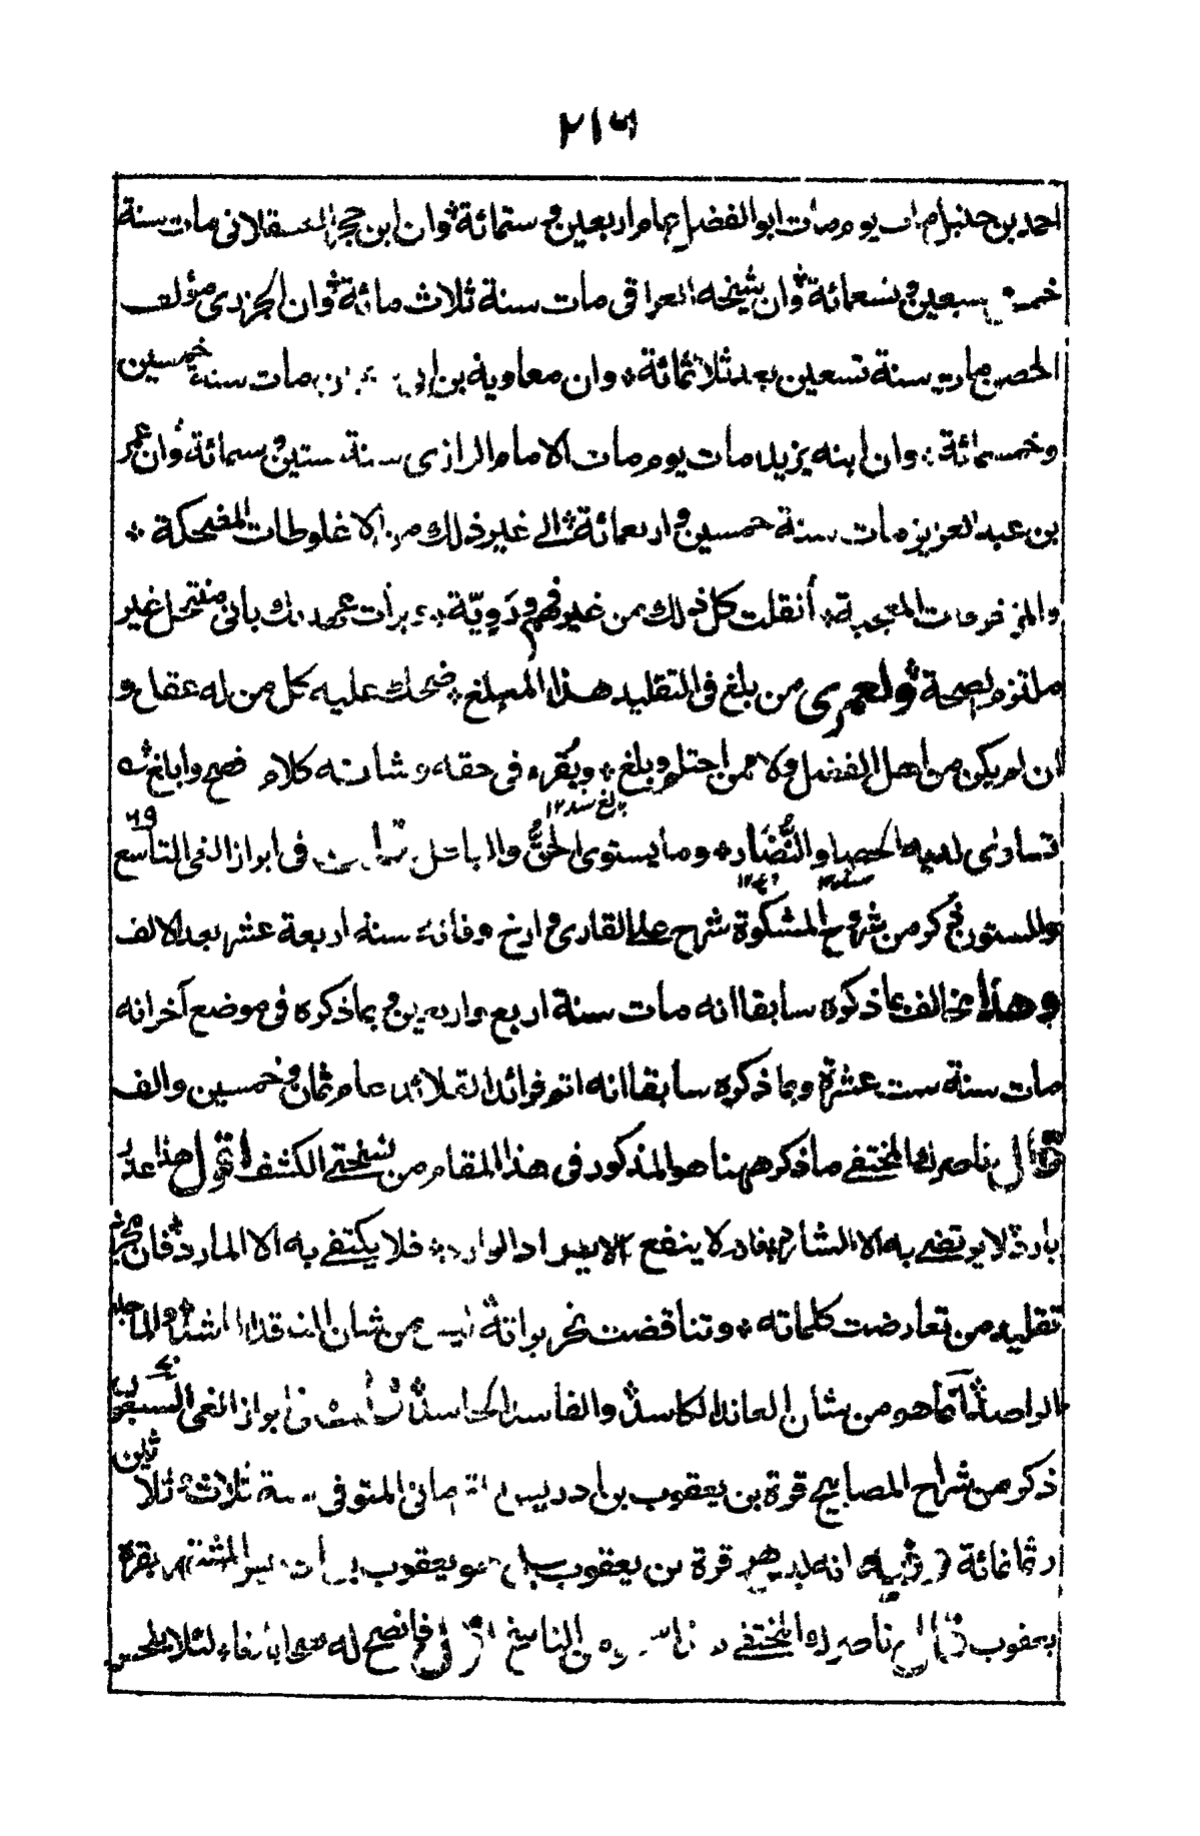 ٢١٦
احمد بن حنبل مات يوم مات ابو الفضل عام اربعين و ستمائة وان ابن حجر العسقلانى مات سنة
سبعين و تسعمائة وان شيخه العراقى مات سنة ثلاث مائة وان الجزرى مؤلف
الحصن مات سنة تسعين بعد ثلاثمائة وان معاوية بن مات سنة خمسين
وخمسمائة وان ابنه يزيد مات يوم مات الامام الرازى سنة ستين و ستمائة وان عمر
بن عبد العزيز مات سنة خمسين و اربعمائة الى غير ذلك من الاغلوطات المضحكة
والمزخرفات المعجبة أنقلت كل ذلك من غير فهم و رَوِيّة بأنى منتحل غير
ملتزم لصحة ولعمرى من بلغ فى التقليد هذا المبلغ ضحك عليه كل من له عقل و
ان لم يكن من اهل الفضل و كل من احتلم و بلغ ويُقرء فى حقه و شانه كلام فصيح وابلغ
بالغ شد ١٢
تساوى لديه الحصباو النُّضَار وما يستوى الحقُّ والباطل فى ابراز الغى التاسع ٦٩
والستون ذكر من شروح المشكوة شرح على القارى و ارخ وفاته سنة اربعة عشر بعد الالف
وهذا مخالف بما ذكره سابقا انه مات سنة اربع واربعين و بما ذكره فى موضع آخر انه
مات سنة ست عشرة وبما ذكره سابقا انه اتم فوائد القلائد عام ثمان و خمسين والف
قال ناصرك المختفى ما ذكر ههنا هو المذكور فى هذا المقام من نسختى الكشف اقول هذا عذر
بارد لا يرتضى به الا الشارد لا ينفع الايراد الوارد فلا يكتفى به الا المارد فان مجرد
تقليد من تعارضت كلماته وتناقضت تحريراته ليس من شان الناقد الراشد والماجد
الراصد انما هو من شان العاند الكاسد والفاسد الحاسد ابراز الغى السبعون
ذكر من شراح المصابيح قرة بن يعقوب بن ادريس المتوفى سنة ثلاث وثلاثين
وثمانمائة وفيه انه ليس هو قرة بن يعقوب بل هو يعقوب بن ادريس المشتهر بقره
يعقوب قال ناصرك المختفى من الناسخ اقول فانصح له